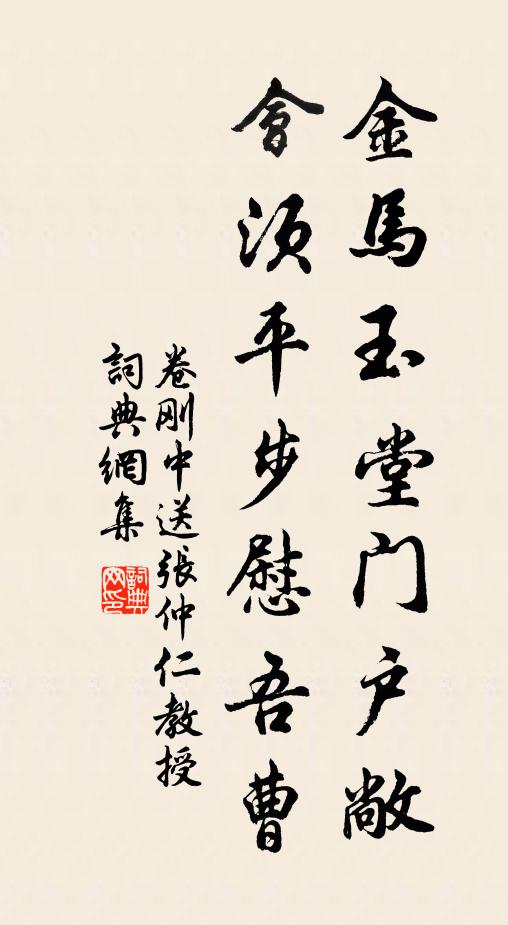 金馬玉堂門户敞
會須平步慰吾曹
卷刚中送張仲仁教授
詞典網集
詞典
网印